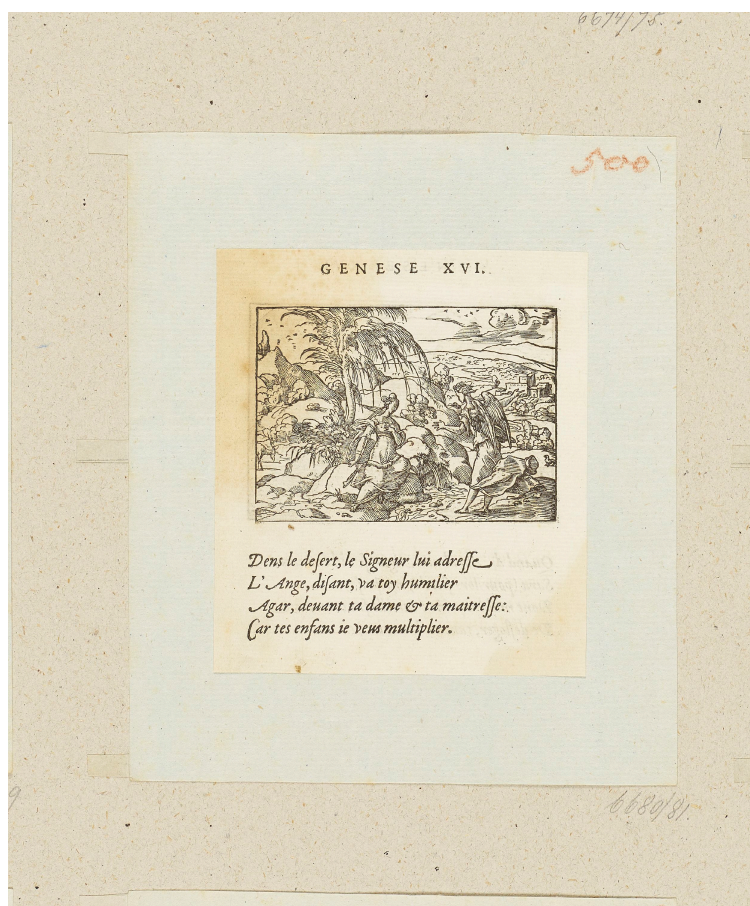 6674/75.
500
GENESE XVI.
Dens le deſert, le Signeur lui adreſſe
L'Ange, diſant, va toy humilier
Agar, deuant ta dame & ta maitreſſe:
Car tes enfans ie veus multiplier.
6680/81.